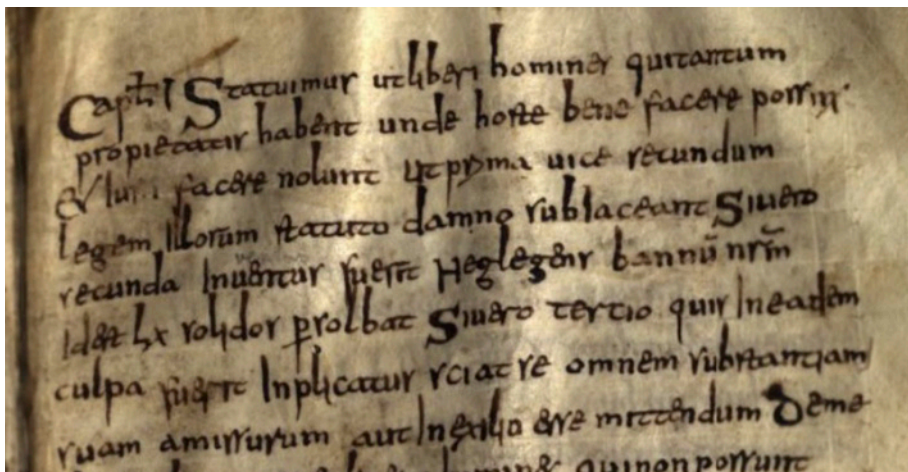 Captł I Statuimus ut liberi homines qui tantum
propietatis habent unde hoste bene facere possint
et iussi facere nolunt ut prima uice secundum
legem illorum statuto damno subiaceant Si uero
secunda Inuentus fuerit Neglegens bannū nr̄m
Id est lx solidos persolbat Si uero tertio quis In eadem
culpa fuerit Inplicatus sciat se omnem substantiam
suam amissurum aut In exilio esse mittendum De me
qui non possunt